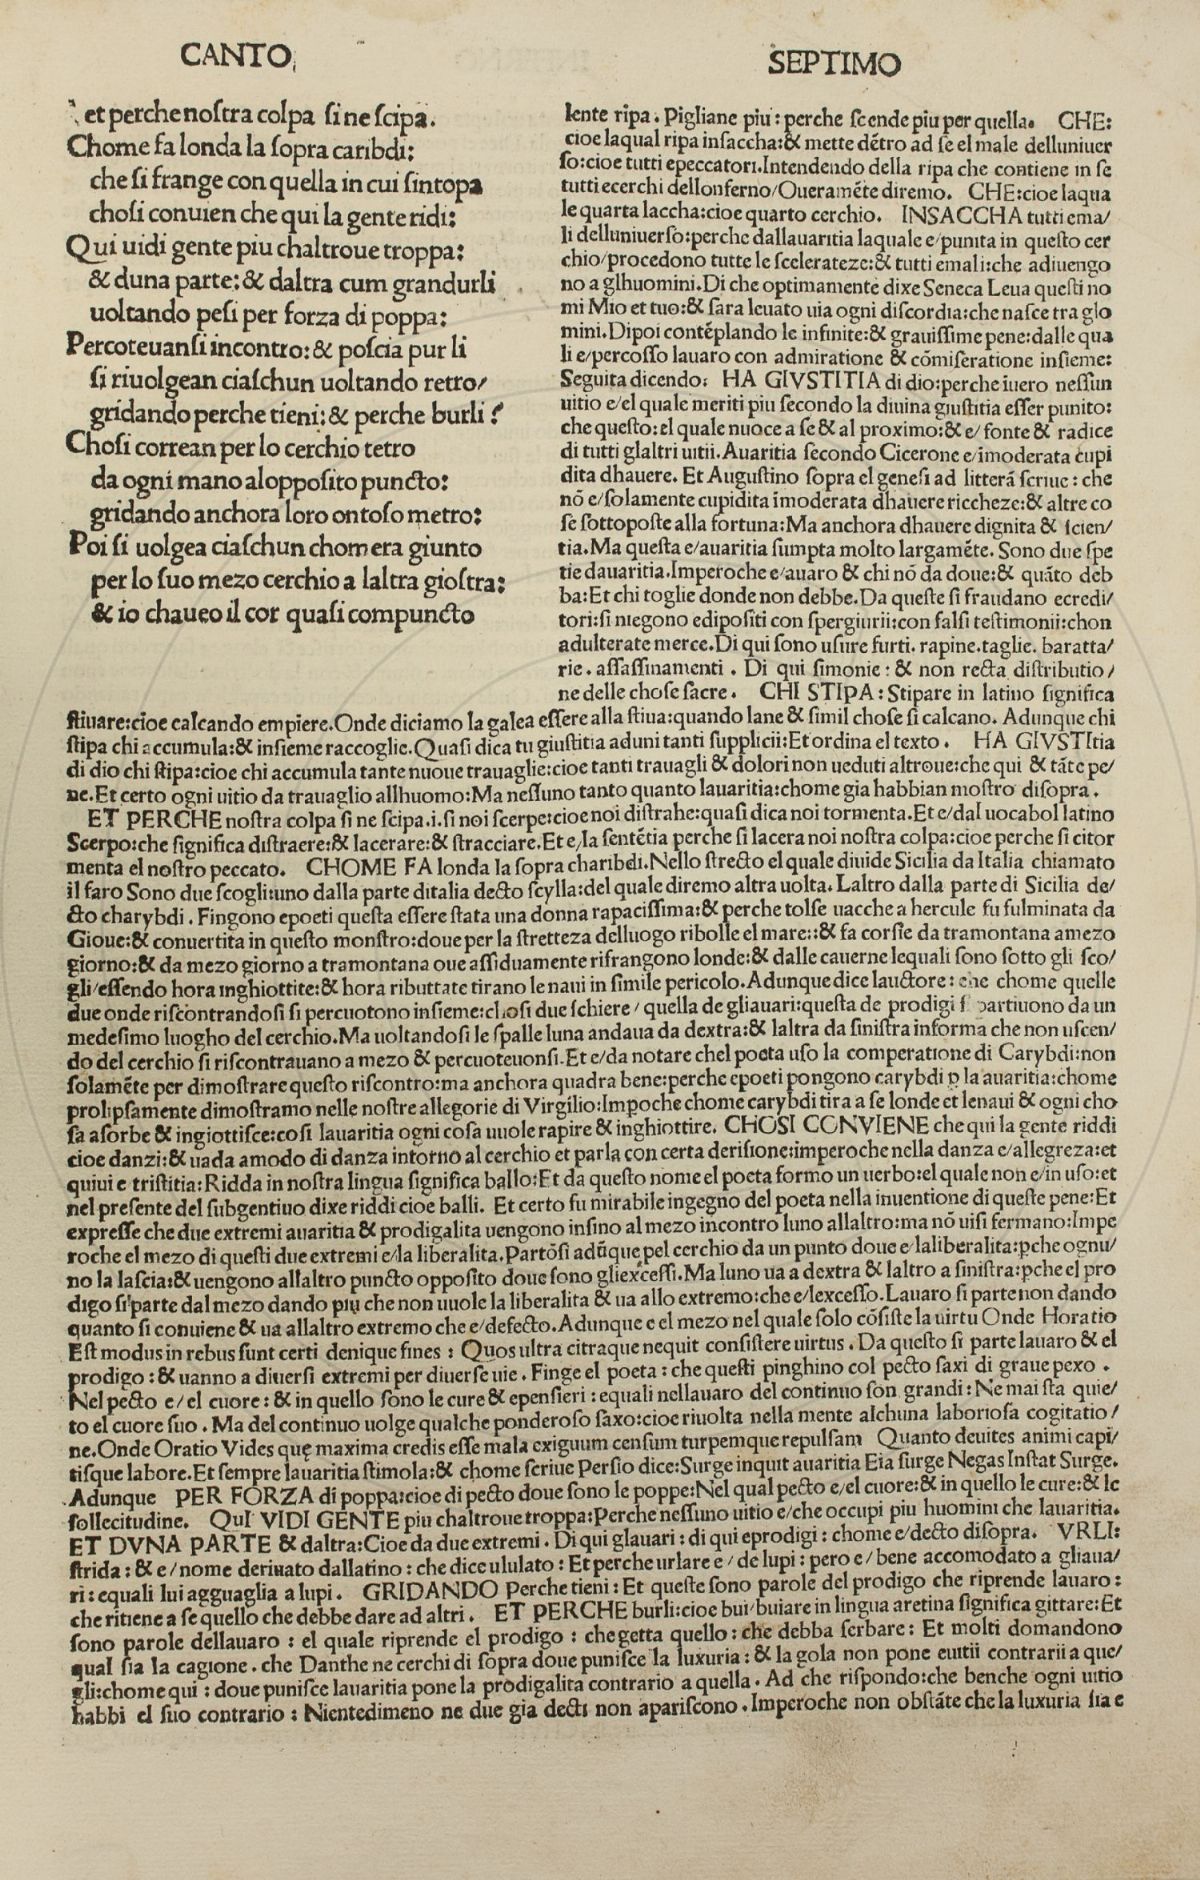 CANTO
SEPTIMO
et perche noſtra colpa ſi ne ſcipa.
Chome fa londa la ſopra caribdi:
che ſi frange con quella in cui ſintopa
choſi conuien che qui la gente ridi:
Qui uidi gente piu chaltroue troppa:
& duna parte: & daltra cum grandurli
uoltando peſi per forza di poppa:
Percoteuanſi incontro: & poſcia pur li
ſi riuolgean ciaſchun uoltando retro/
gridando perche tieni: & perche burli?
Choſi correan per lo cerchio tetro
da ogni mano aloppoſito puncto:
gridando anchora loro ontoſo metro:
Poi ſi uolgea ciaſchun chom era giunto
per lo ſuo mezo cerchio a laltra gioſtra:
& io chaueo il cor quaſi compuncto
lente ripa. Pigliane piu: perche ſcende piu per quella. CHE:
cioe laqual ripa inſaccha: & mette dētro ad ſe el male delluniuer
ſo: cioe tutti epeccatori. Intendendo della ripa che contiene in ſe
tutti ecerchi dellonferno/Oueramēte diremo. CHE: cioe laqua
le quarta laccha: cioe quarto cerchio. INSACCHA tutti ema/
li delluniuerſo: perche dallauaritia laquale e/punita in queſto cer
chio/procedono tutte le ſcelerateze: & tutti emali: che adiuengo
no a glhuomini. Di che optimamente dixe Seneca Leua queſti no
mi Mio et tuo: & ſara leuato uia ogni diſcordia: che naſce tra glo
mini. Dipoi contēplando le infinite: & grauiſſime pene: dalle qua
li e/percoſſo lauaro con admiratione & cōmiſeratione inſieme:
Seguita dicendo: HA GIVSTITIA di dio: perche iuero neſſun
uitio e/el quale meriti piu ſecondo la diuina giuſtitia eſſer punito:
che queſto: el quale nuoce a ſe & al proximo: & e/fonte & radice
di tutti glaltri uitii. Auaritia ſecondo Cicerone e/īmoderata cupi
dita dhauere. Et Auguſtino ſopra el geneſi ad litterā ſcriue: che
nō e/ſolamente cupidita īmoderata dhauere riccheze: & altre co
ſe ſottopoſte alla fortuna: Ma anchora dhauere dignita & ſcien/
tia. Ma queſta e/auaritia ſumpta molto largamēte. Sono due ſpe
tie dauaritia. Imperoche e/auaro & chi nō da doue: & quāto deb
ba: Et chi toglie donde non debbe. Da queſte ſi fraudano ecredi/
tori: ſi niegono edipoſiti con ſpergiurii: con falſi teſtimonii: chon
adulterate merce. Di qui ſono uſure furti. rapine. taglie. baratta/
rie. aſſaſſinamenti. Di qui ſimonie: & non recta diſtributio/
ne delle choſe ſacre. CHI STIPA: Stipare in latino ſignifica
ſtiuare: cioe calcando empiere. Onde diciamo la galea eſſere alla ſtiua: quando lane & ſimil choſe ſi calcano. Adunque chi
ſtipa chi accumula: & inſieme raccoglie. Quaſi dica tu giuſtitia aduni tanti ſupplicii: Et ordina el texto. HA GIVSTItia
di dio chi ſtipa: cioe chi accumula tante nuoue trauaglie: cioe tanti trauagli & dolori non ueduti altroue: che qui & tāte pe/
ne. Et certo ogni uitio da trauaglio allhuomo: Ma neſſuno tanto quanto lauaritia: chome gia habbian moſtro diſopra.
ET PERCHE noſtra colpa ſi ne ſcipa. i. ſi noi ſcerpe: cioe noi diſtrahe: quaſi dica noi tormenta. Et e/dal uocabol latino
Scerpo: che ſignifica diſtraere: & lacerare: & ſtracciare. Et e/la ſentētia perche ſi lacera noi noſtra colpa: cioe perche ſi citor
menta el noſtro peccato. CHOME FA londa la ſopra charibdi. Nello ſtrecto el quale diuide Sicilia da Italia chiamato
il faro Sono due ſcogli: uno dalla parte ditalia decto ſcylla: del quale diremo altra uolta. Laltro dalla parte di Sicilia de/
cto charybdi. Fingono epoeti queſta eſſere ſtata una donna rapaciſſima: & perche tolſe uacche a hercule fu fulminata da
Gioue: & conuertita in queſto monſtro: doue per la ſtretteza delluogo ribolle el mare:: & fa corſie da tramontana amezo
giorno: & da mezo giorno a tramontana oue aſſiduamente rifrangono londe: & dalle cauerne lequali ſono ſotto gli ſco/
gli/eſſendo hora inghiottite: & hora ributtate tirano le naui in ſimile pericolo. Adunque dice lauctore: che chome quelle
due onde riſcontrandoſi ſi percuotono inſieme: choſi due ſchiere/quella de gliauari: queſta de prodigi partiuono da un
medeſimo luogho del cerchio. Ma uoltandoſi le ſpalle luna andaua da dextra: & laltra da ſiniſtra informa che non uſcen/
do del cerchio ſi riſcontrauano a mezo & percuoteuonſi. Et e/da notare chel poeta uſo la comperatione di Carybdi: non
ſolamēte per dimoſtrare queſto riſcontro: ma anchora quadra bene: perche epoeti pongono carybdi ꝑ la auaritia: chome
prolipſamente dimoſtramo nelle noſtre allegorie di Virgilio: Impoche chome carybdi tira a ſe londe et lenaui & ogni cho
ſa aſorbe & ingiottiſce: coſi lauaritia ogni coſa uuole rapire & inghiottire. CHOSI CONVIENE che qui la gente riddi
cioe danzi: & uada amodo di danza intorno al cerchio et parla con certa deriſione: imperoche nella danza e/allegreza: et
quiui e triſtitia: Ridda in noſtra lingua ſignifica ballo: Et da queſto nome el poeta formo un uerbo: el quale non e/in uſo: et
nel preſente del ſubgentiuo dixe riddi cioe balli. Et certo fu mirabile ingegno del poeta nella inuentione di queſte pene: Et
expreſſe che due extremi auaritia & prodigalita uengono inſino al mezo incontro luno allaltro: ma nō uiſi fermano: Impe
roche el mezo di queſti due extremi e/la liberalita. Partōſi adūque pel cerchio da un punto doue e/laliberalita: ꝑche ognu/
no la laſcia: & uengono allaltro puncto oppoſito doue ſono gliexceſſi. Ma luno ua a dextra & laltro a ſiniſtra: ꝑche el pro
digo ſi parte dal mezo dando piu che non uuole la liberalita & ua allo extremo: che e/lexceſſo. Lauaro ſi parte non dando
quanto ſi conuiene & ua allaltro extremo che e/defecto. Adunque e el mezo nel quale ſolo cōſiſte la uirtu Onde Horatio
Eſt modus in rebus ſunt certi denique fines: Quos ultra citraque nequit conſiſtere uirtus. Da queſto ſi parte lauaro & el
prodigo: & uanno a diuerſi extremi per diuerſe uie. Finge el poeta: che queſti pinghino col pecto ſaxi di graue pexo.
Nel pecto e/el cuore: & in quello ſono le cure & epenſieri: equali nellauaro del continuo ſon grandi: Ne mai ſta quie/
to el cuore ſuo. Ma del continuo uolge qualche ponderoſo ſaxo: cioe riuolta nella mente alchuna laborioſa cogitatio/
ne. Onde Oratio Vides quę maxima credis eſſe mala exiguum cenſum turpemque repulſam Quanto deuites animi capi/
tiſque labore. Et ſempre lauaritia ſtimola: & chome ſcriue Perſio dice: Surge inquit auaritia Eia ſurge Negas Inſtat Surge.
Adunque PER FORZA di poppa: cioe di pecto doue ſono le poppe: Nel qual pecto e/el cuore: & in quello le cure: & le
ſollecitudine. QuI VIDI GENTE piu chaltroue troppa: Perche neſſuno uitio e/che occupi piu huomini che lauaritia.
ET DVNA PARTE & daltra: Cioe da due extremi. Di qui glauari: di qui eprodigi: chome e/decto diſopra. VRLI:
ſtrida: & e/nome deriuato dallatino: che dice ululato: Et perche urlare e/de lupi: pero e/bene accomodato a gliaua/
ri: equali lui agguaglia a lupi. GRIDANDO Perche tieni: Et queſte ſono parole del prodigo che riprende lauaro:
che ritiene a ſe quello che debbe dare ad altri. ET PERCHE burli: cioe bui/buiare in lingua aretina ſignifica gittare: Et
ſono parole dellauaro: el quale riprende el prodigo: chegetta quello: che debba ſerbare: Et molti domandono
qual ſia la cagione. che Danthe ne cerchi di ſopra doue puniſce la luxuria: & la gola non pone euitii contrarii a que/
gli: chome qui: doue puniſce lauaritia pone la prodigalita contrario a quella. Ad che riſpondo: che benche ogni uitio
habbi el ſuo contrario: Nientedimeno ne due gia decti non apariſcono. Imperoche non obſtāte che la luxuria ſia e